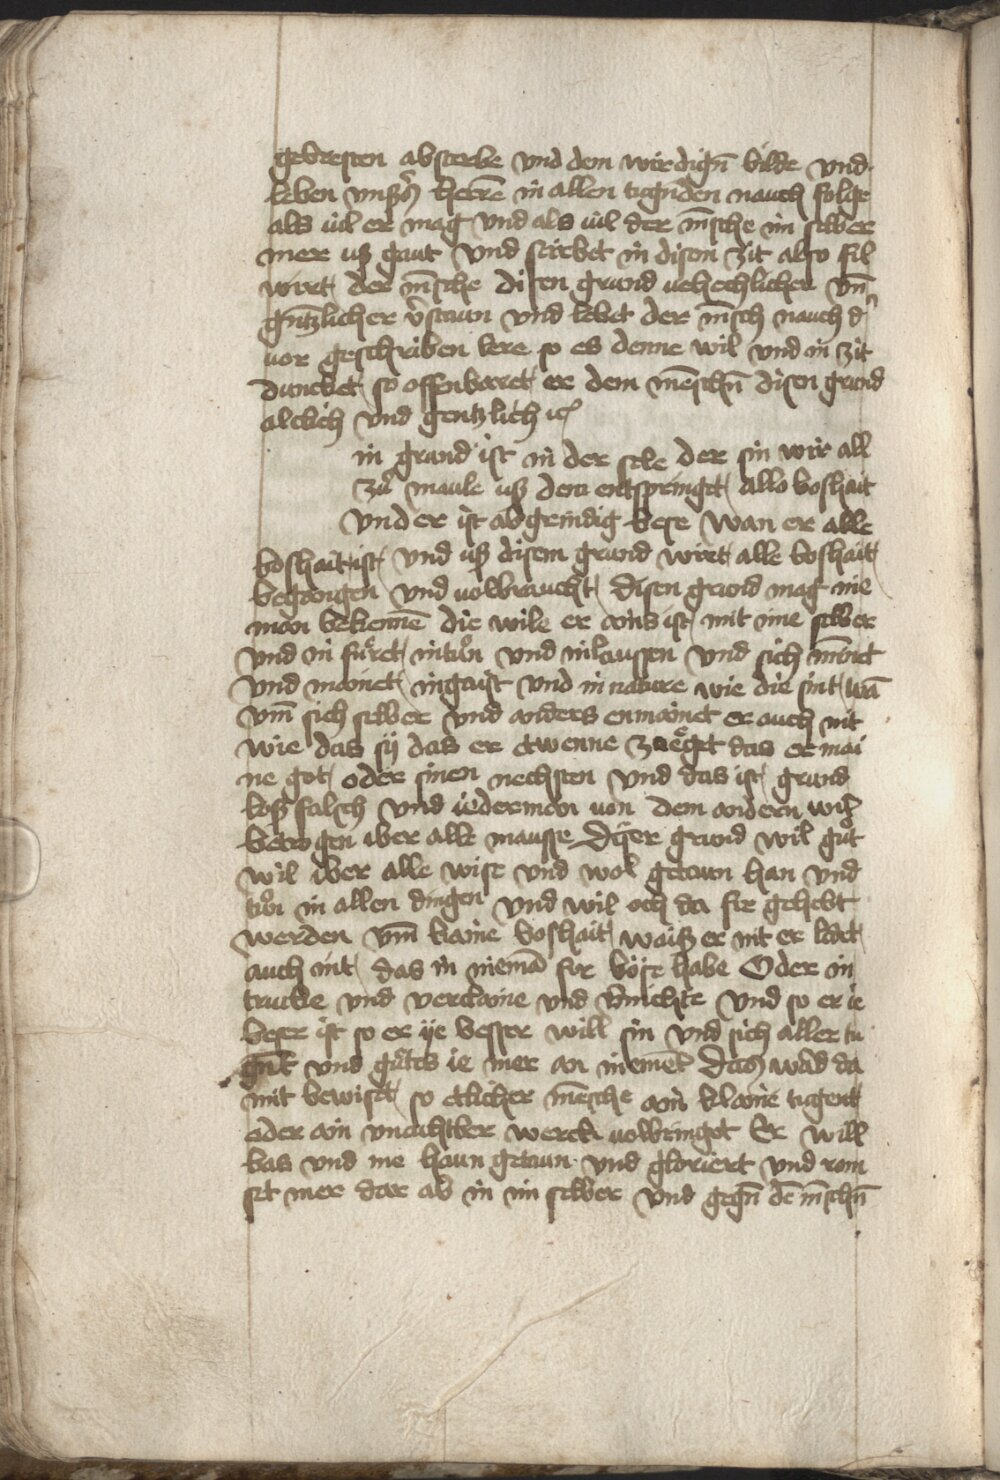 gebresten absterbe vnd dem wirdigē bilde vnd
leben vnßs herrē in allen tugnden nauch folge
als uil er mag vnd als uil der mēsche im selber
mer uß gaut vnd stirbet in disem zit also fil
wirt der mēsche disen grund uehechlicher vn̄
gntzlicher v̓staun vnd lebet der mēsch nauch d̓
uor geschriben lere so es denne wil vnd in zit
duncket so offenbaret er dem mēschn̄ disen grund
alclich vnd gentzlich
in grund ist in der sele der sin wir all
zů maule uß dem entspringet allo boshait
vnd er ist abgrindig bese wan er alle
boshait ist vnd uß disem grund wirt alle boshait
begangen vnd uolbraucht disen grund mag nie
man bekennē die wile er ains ist mit ime selber
vnd in fůret intůn vnd inlaussen vnd sich mīnet
vnd mainet ingaist vnd in nature wie die sint wā
vm̄ sich selber vnd anders enmainet er auch nit
wie das sÿ das er etwenne zoeget das er mai
ne got oder sinen nechsten vnd das ist grund
loß falsch vnd iederman von dem andern wirt
betrogen iber alle mausse Diser grund wil gůt
wil iber alle wise vnd wol getaun han vnd
tůn in allen dingen vnd wil och da fir gehebt
werden vm̄ kaine boshait waiß er nit er ledet
auch nit das in niemā fir böse habe Oder in
trucke vnd verclaine vnd v̓nichte vnd so er ie
beser ist so er ÿe besser will sin vnd sich aller tu
gn̄t vnd gůtes ie mer an niemet das wād da
mit bewist so etlicher mēsche ain klaine tugent
oder ain vnachtber werck uolbringet Er will
bas vnd me haun getaun vnd gloriert vnd rom
set mer dar ab in im selber vnd gegn̄ dē mēschn̄